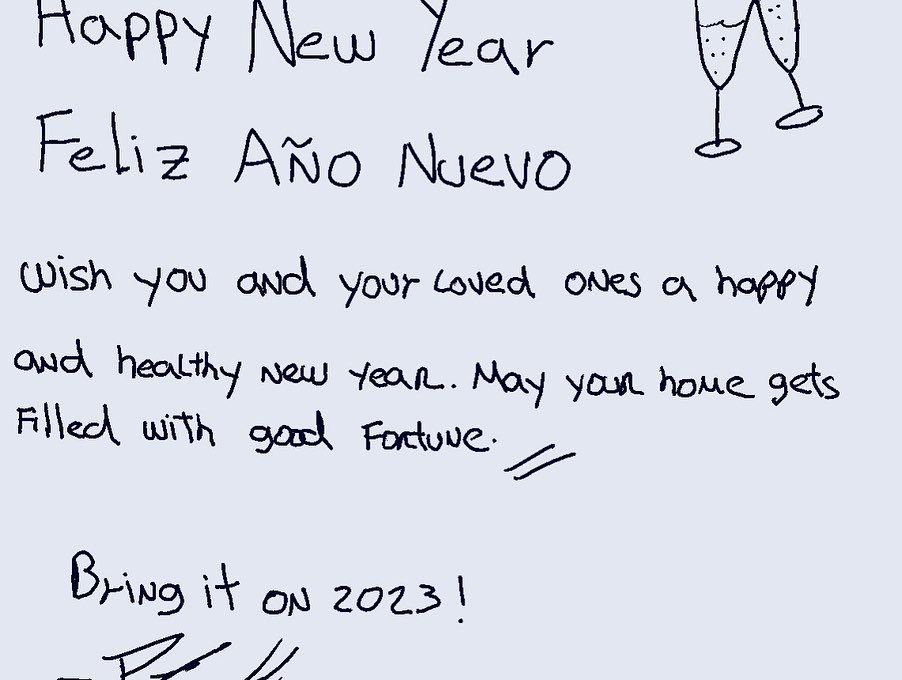 Happy New Year
Feliz Año Nuevo
Wish you and your loved ones a happy
and healthy new year. May your home gets
filled with good fortune.
Bring it on 2023!